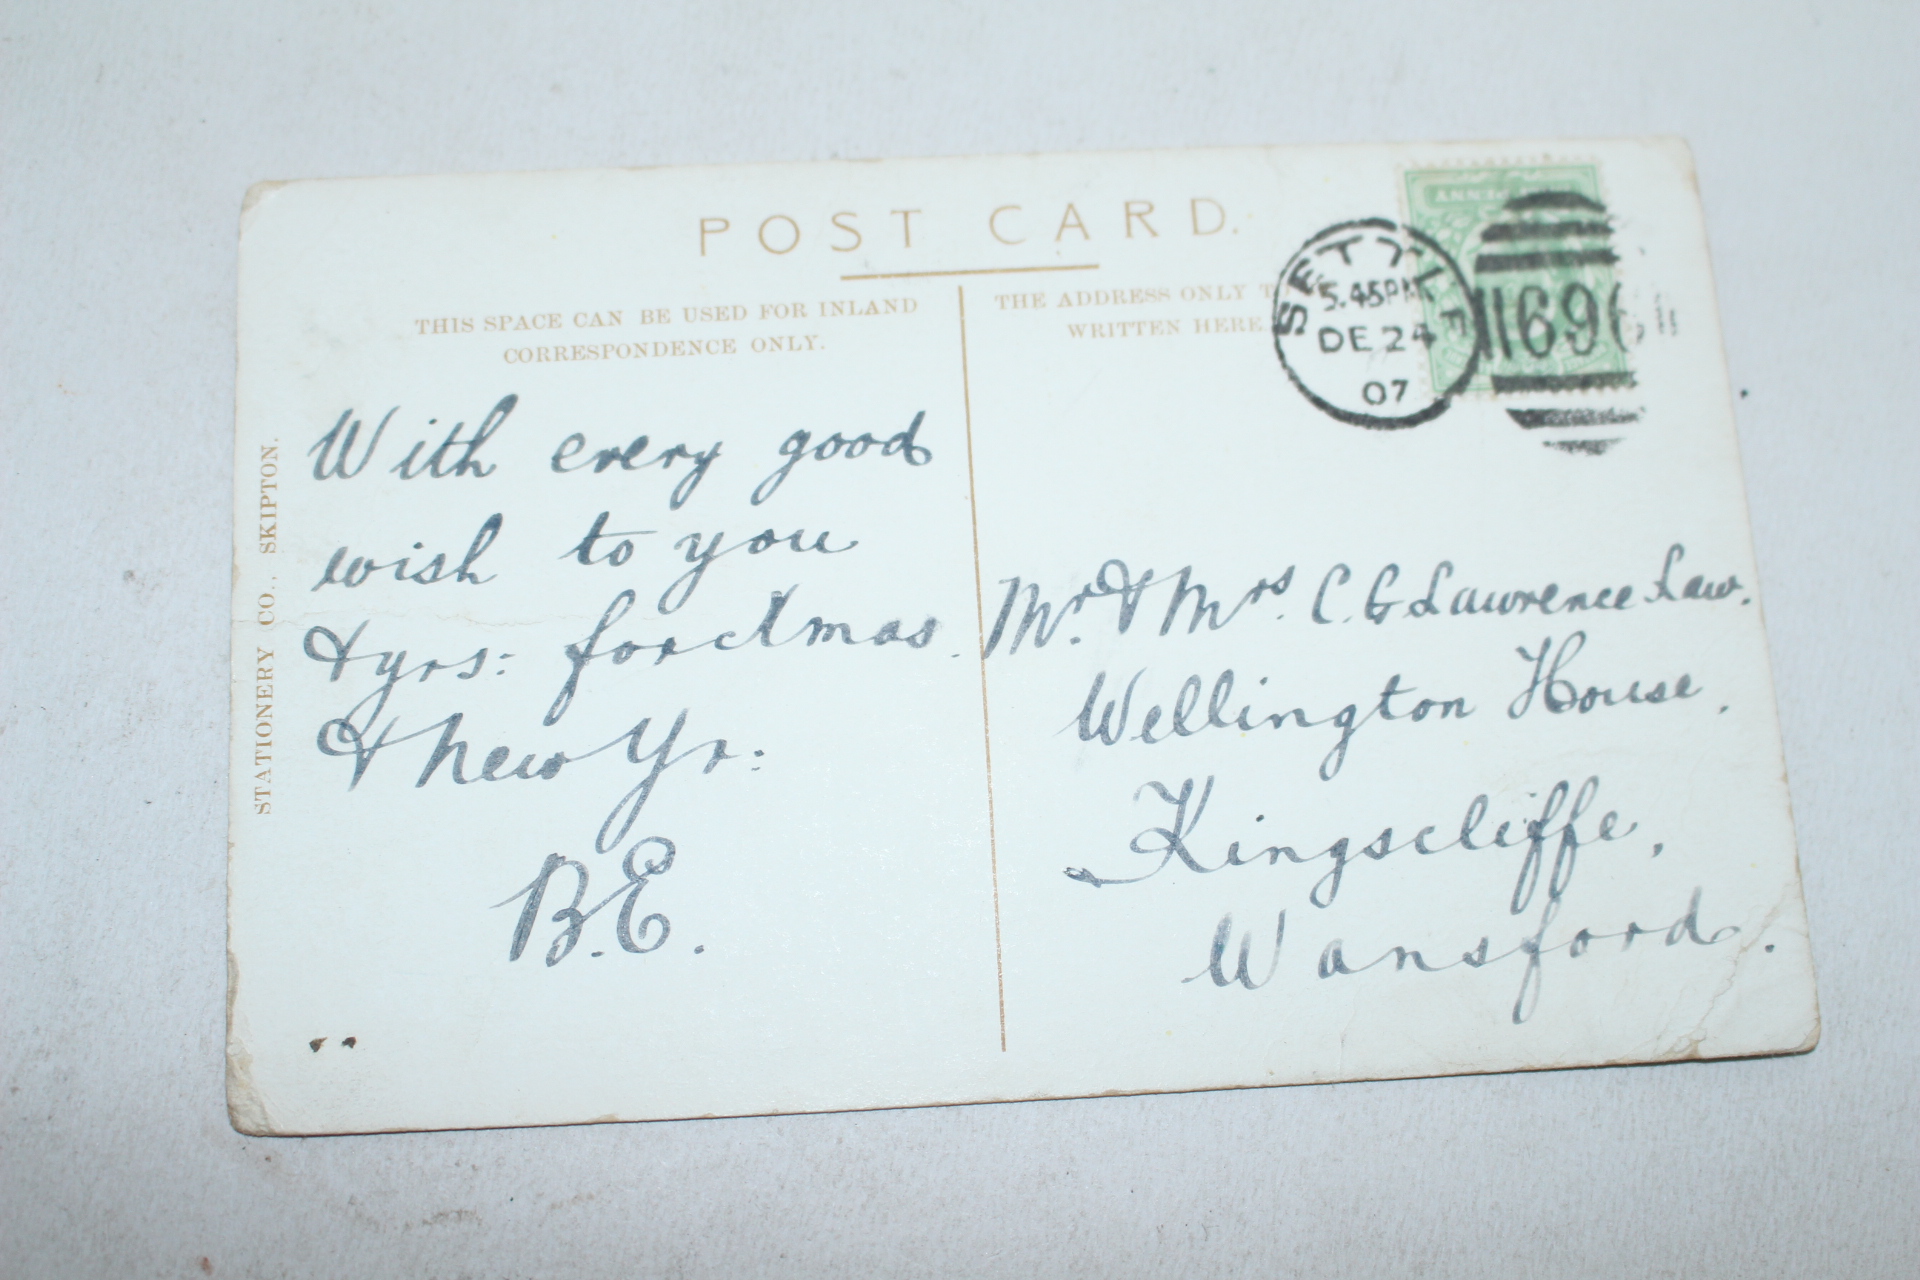 POST CARD.
THIS SPACE CAN BE USED FOR INLAND
CORRESPONDENCE ONLY.
THE ADDRESS ONLY
WRITTEN HERE.
SETTLE
5.45PM
DE 24
07
696
With every good
wish to you
& yrs: for Xmas.
& New Yr:
B.E.
Mr. & Mrs. C. G Lawrence Law.
Wellington House.
Kingscliffe,
Wansford.
STATIONERY CO., SKIPTON.